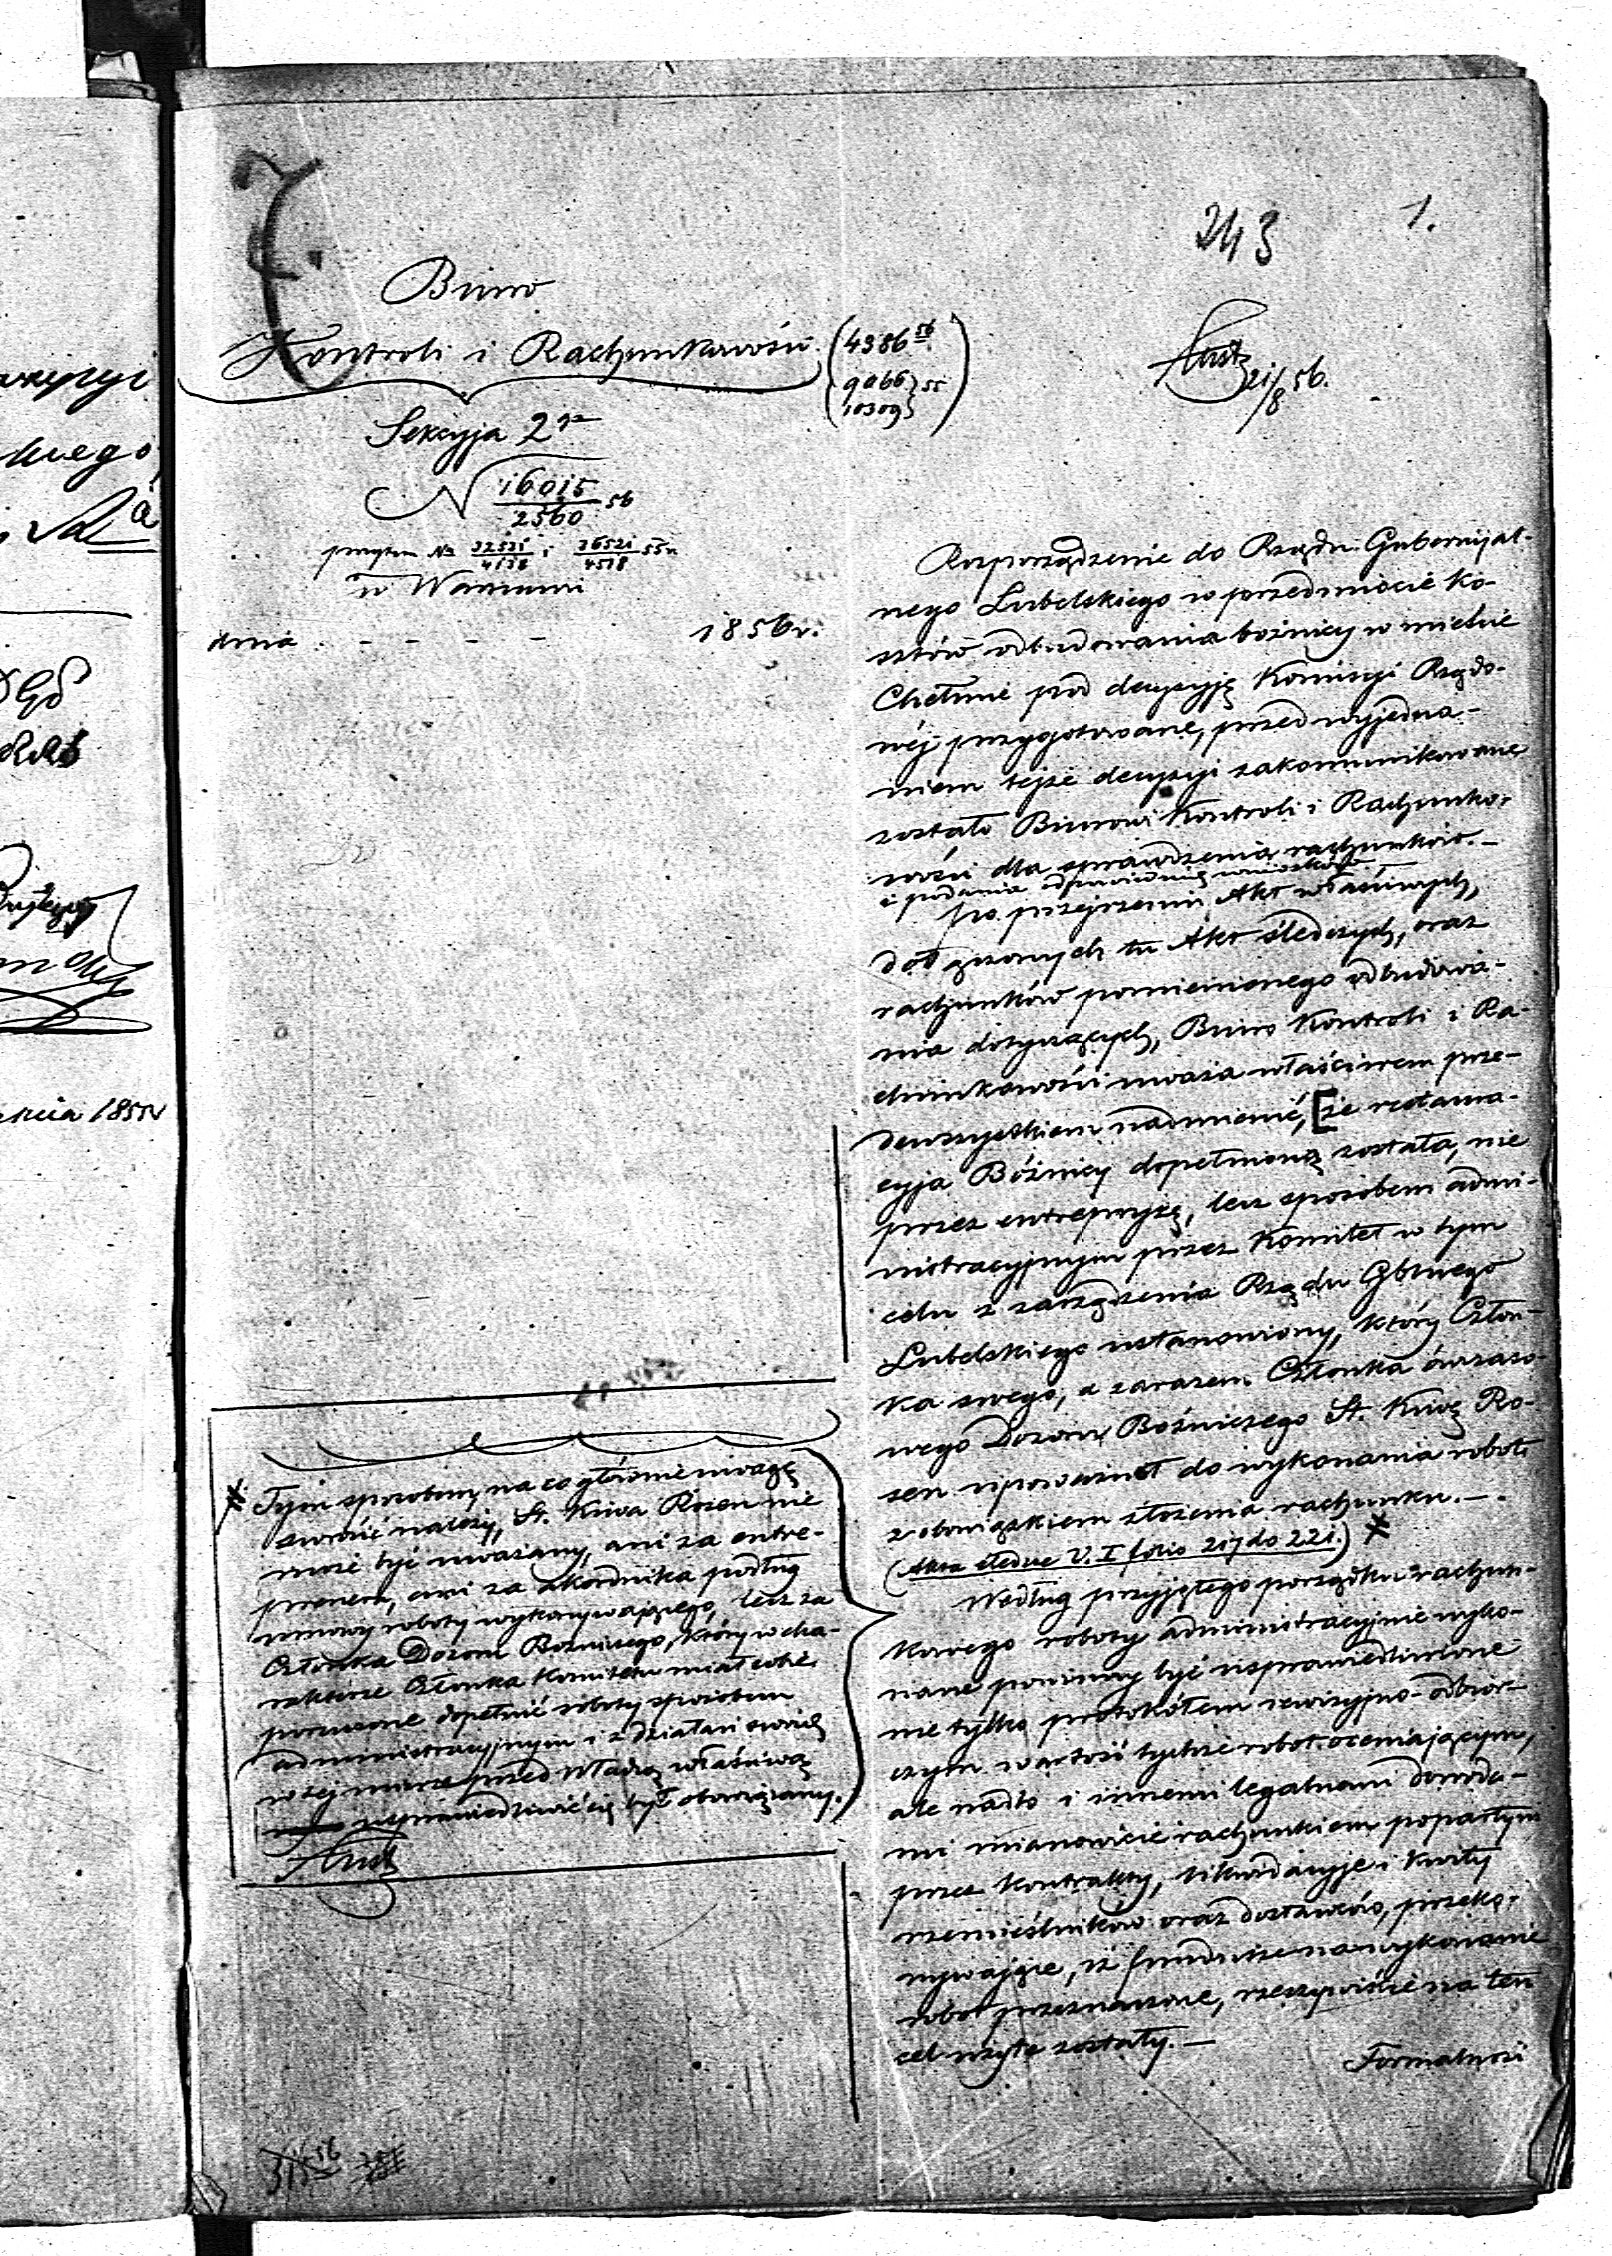 243
1.
Biuro
Kontroli i Rachunkowości
(4986 56
9066 } 55
10309
21/8 56.
Sekcyja 2ga
N 16015/2560 56
w Warszawie
dnia - - - - 1856 r.
Rozporządzenie do Rządu Gubernijal-
nego Lubelskiego w przedmiocie ko-
sztów odbudowania bożnicy w mieście
Chełmie pod decyzyję Komisyi Rządo-
wéj przygotowane, przed wyjedna-
niem tejże decyzyi zakommunikowane
zostało Biurowi Kontroli i Rachunko-
wości dla sprawdzenia rachunków. -
i podania odpowiednich wniosków
Po przejrzeniu Akt właściwych,
dołączonych tu Akt śledczych, oraz
rachunków pomienionego odbudowa-
nia dotyczących, Biuro Kontroli i Ra-
chunkowości uważa właściwem prze-
dewszystkiem nadmienić, [że restaura-
cyja Bóżnicy dopełnioną została, nie
przez entrepryzę, lecz sposobem admi-
nistracyjnym przez Komitet w tym
celu z zarządzenia Rządu Gblnego
Lubelskiego ustanowiony, który Człon-
ka swego, a zarazem Członka ówczaso-
wego Dozoru Bożniczego St. Kiwę Ro-
zen upoważnił do wykonania robót
z obowiązkiem złożenia rachunku. -
(Akta śledcze V. I folio 217 do 221.) #
Według przyjętego porządku rachun-
kowego roboty administracyjnie wyko-
nane powinny być usprawiedliwione
nie tylko protokółem rewizyjno-odbior-
czym wartość tychże robot oceniającym,
ale nadto i innemi legalnemi dowoda-
mi mianowicie rachunkiem popartym
przez kontrakty, likwidacyje i kwity
rzemieślników oraz dostawców, przeko-
nywające, iż fundusze na wykonanie
robot przeznaczone, rzeczywiście na ten
cel użyte zostały. -
Formalność
# Tym sposobem, na co głównie uwagę
zwrócić należy, St. Kiwa Rozen nie
może być uważany, ani za entre-
prenera, ani za akordnika podług
umowy roboty wykonywającego, lecz za
Członka Dozoru Bożniczego, który w cha-
rakterze Członka Komitetu miał sobie
poruczone dopełnić roboty sposobem
administracyjnym i z działań swoich
w tej mierze przed Władzą właściwą
usprawiedliwić się był obowiązany.